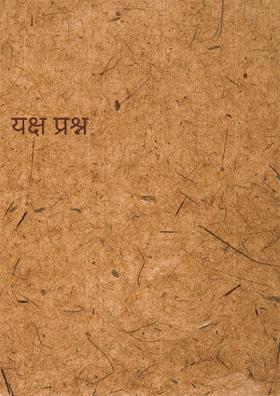 यक्ष प्रश्न